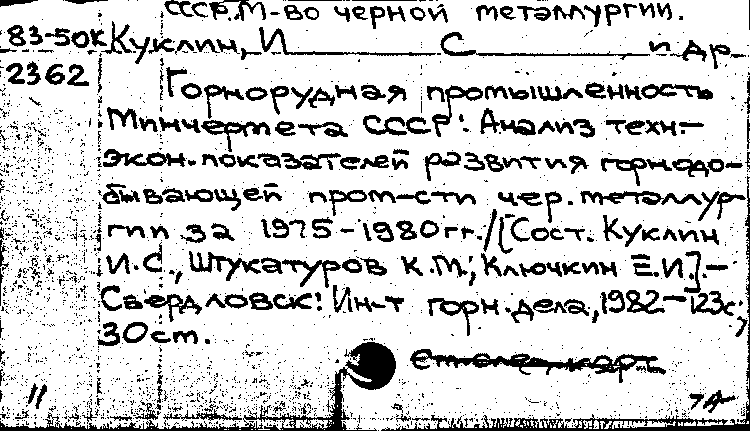 СССР. М-во черной металлургии.
83-50К Куклин, И С и др
2362
Горнорудная промышленность
Минчермета СССР: Анализ техн.-
экон. показателей развития горнодо-
бывающей пром-сти чер. металлур-
гии за 1975-1980гг. / [Сост. Куклин
И.С., Штукатуров К.М., Ключкин Е.И.]. -
Свердловск: Ин-т горн. дела, 1982 - 123с;
30 cm.
11